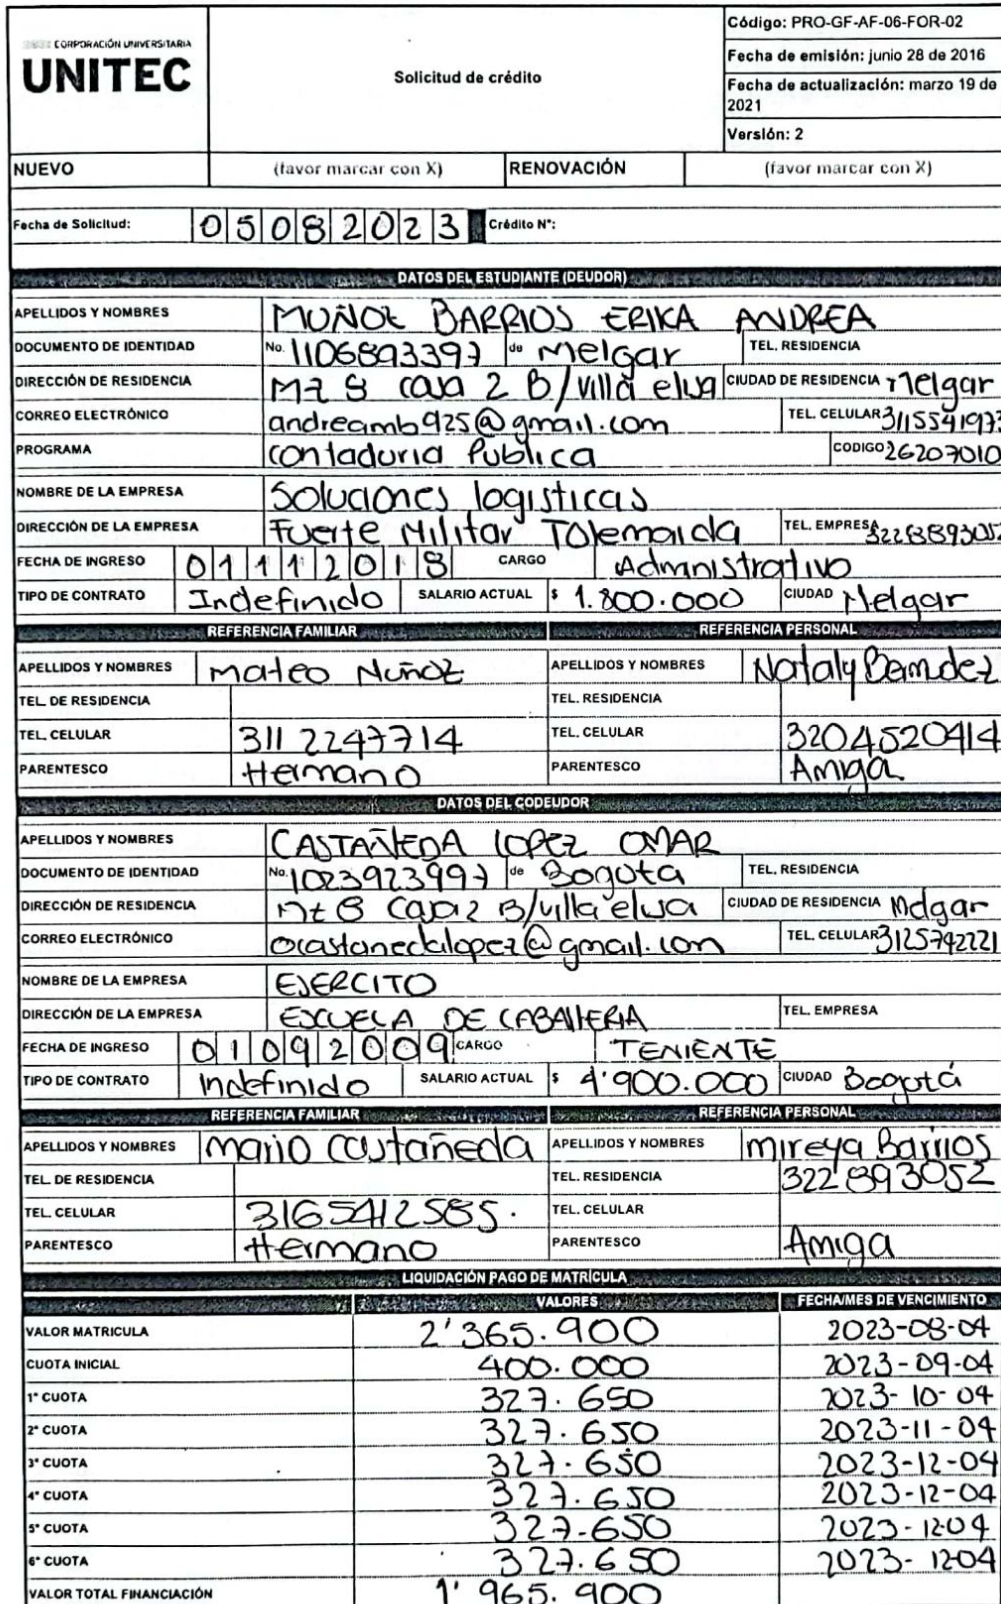 Código: PRO-GF-AF-06-FOR-02
CORPORACIÓN UNIVERSITARIA
UNITEC
Solicitud de crédito
Fecha de emisión: junio 28 de 2016
Fecha de actualización: marzo 19 de 2021
Versión: 2
NUEVO (favor marcar con X) RENOVACIÓN (favor marcar con X)
Fecha de Solicitud: 05082023 Crédito N°:
DATOS DEL ESTUDIANTE (DEUDOR)
APELLIDOS Y NOMBRES MUÑOZ BARRIOS ERIKA ANDREA
DOCUMENTO DE IDENTIDAD No. 1106893397 de Melgar TEL. RESIDENCIA
DIRECCIÓN DE RESIDENCIA Mz 8 casa 2 B/villa elisa CIUDAD DE RESIDENCIA Melgar
CORREO ELECTRÓNICO andreamb925@gmail.com TEL. CELULAR 3115541973
PROGRAMA contaduria Publica CODIGO 26207010
NOMBRE DE LA EMPRESA Soluciones logisticas
DIRECCIÓN DE LA EMPRESA Fuerte Militar Tolemaida TEL. EMPRESA
FECHA DE INGRESO 01112018 CARGO Administrativo
TIPO DE CONTRATO Indefinido SALARIO ACTUAL $ 1.800.000 CIUDAD Melgar
REFERENCIA FAMILIAR REFERENCIA PERSONAL
APELLIDOS Y NOMBRES mateo Muñoz APELLIDOS Y NOMBRES Nataly Bermudez
TEL. DE RESIDENCIA TEL. RESIDENCIA
TEL. CELULAR 311 2247714 TEL. CELULAR 3204520414
PARENTESCO Hermano PARENTESCO Amiga
DATOS DEL CODEUDOR
APELLIDOS Y NOMBRES CASTAÑEDA LOPEZ OMAR
DOCUMENTO DE IDENTIDAD No. 1023923997 de Bogota TEL. RESIDENCIA
DIRECCIÓN DE RESIDENCIA Mz 8 Casa 2 B/villa elisa CIUDAD DE RESIDENCIA Melgar
CORREO ELECTRÓNICO ocastanedalopez@gmail.com TEL. CELULAR 3125792221
NOMBRE DE LA EMPRESA EJERCITO
DIRECCIÓN DE LA EMPRESA ESCUELA DE CABALLERIA TEL. EMPRESA
FECHA DE INGRESO 01092009 CARGO TENIENTE
TIPO DE CONTRATO Indefinido SALARIO ACTUAL $ 4'900.000 CIUDAD Bogotá
REFERENCIA FAMILIAR REFERENCIA PERSONAL
APELLIDOS Y NOMBRES mario Castañeda APELLIDOS Y NOMBRES mireya Barrios
TEL. DE RESIDENCIA TEL. RESIDENCIA 322 893052
TEL. CELULAR 3165412585. TEL. CELULAR
PARENTESCO Hermano PARENTESCO Amiga
LIQUIDACIÓN PAGO DE MATRÍCULA
VALORES FECHA/MES DE VENCIMIENTO
VALOR MATRICULA 2'365.900 2023-08-04
CUOTA INICIAL 400.000 2023-09-04
1° CUOTA 327.650 2023-10-04
2° CUOTA 327.650 2023-11-04
3° CUOTA 327.650 2023-12-04
4° CUOTA 327.650 2023-12-04
5° CUOTA 327.650 2023-1204
6° CUOTA 327.650 2023-1204
VALOR TOTAL FINANCIACIÓN 1'965.900